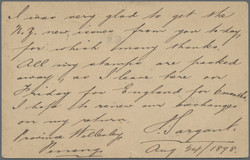 I was very glad to get the
N.Z. new issues from you to-day,
for which many thanks.
All my stamps are packed
away as I leave here on
Friday for England for 6 months
I hope to renew our exchanges
on my return.
Province Wellesley
Penang
Aug 24/1898.